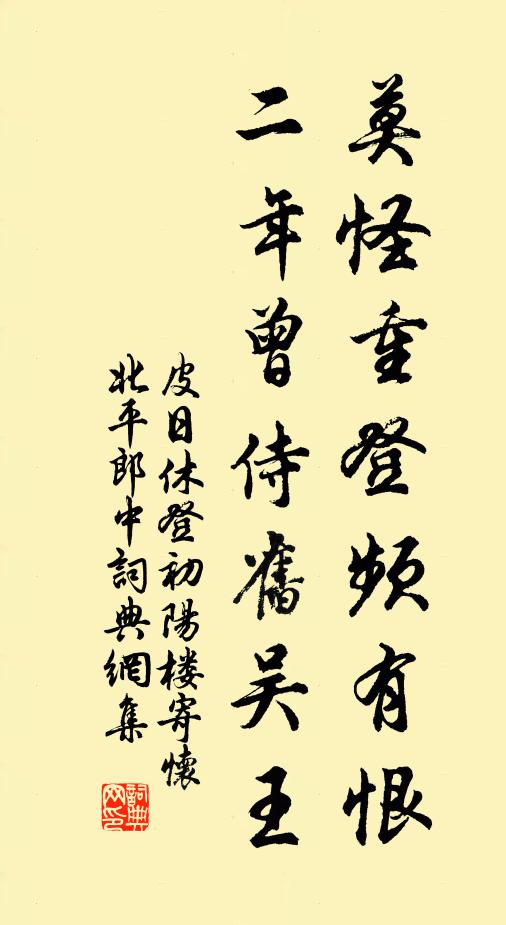 莫怪重登頻有恨
二年曾侍舊吴王
皮日休登初陽楼寄懷
北平郎中詞典網集
詞典
网印